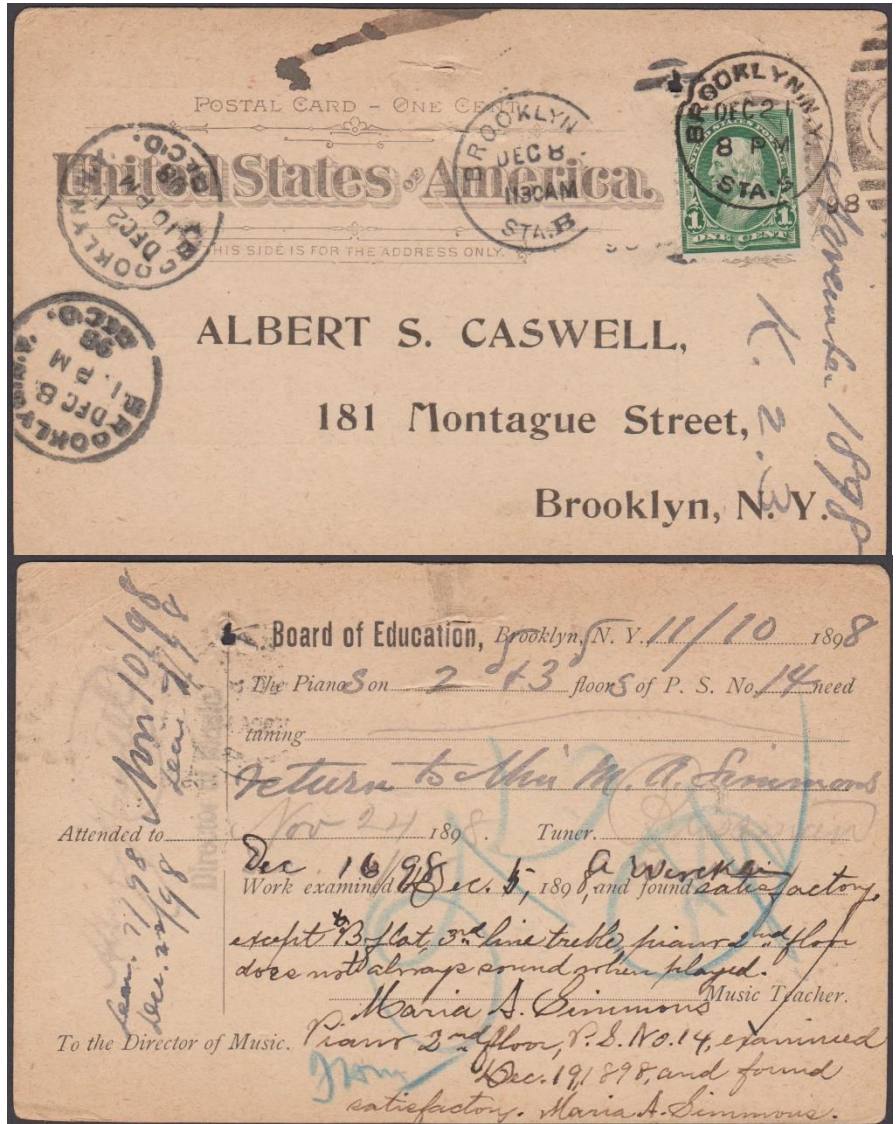 POSTAL CARD - ONE CENT
United States of America.
THIS SIDE IS FOR THE ADDRESS ONLY.
BROOKLYN
DEC 8
11 30 AM
STA. B
BROOKLYN, N.Y.
DEC 21
8 PM
STA. S
98
1 ONE CENT 1
BROOKLYN
DEC 21
10 PM
98
REC'D.
BROOKLYN
DEC 8
1 PM
98
REC'D.
ALBERT S. CASWELL,
181 Montague Street,
Brooklyn, N. Y.
November 1898
K. 2. 3
Board of Education, Brooklyn, N. Y. 11/10 1898
The Pianos on 2 + 3 floors of P. S. No. 14 need
tuning
return to Miss M. A. Simmons
Attended to Nov 24 1898. Tuner.
Dec 16 98
Work examined Dec. 5, 1898, and found satisfactory,
except B flat, 3rd line treble, piano 2nd floor
does not always sound when played.
Maria A. Simmons Music Teacher.
To the Director of Music. Piano 2nd floor, P. S. No. 14, examined
Dec. 19, 1898, and found
satisfactory. Maria A. Simmons.
Nov 10/98
Dec. 22/98